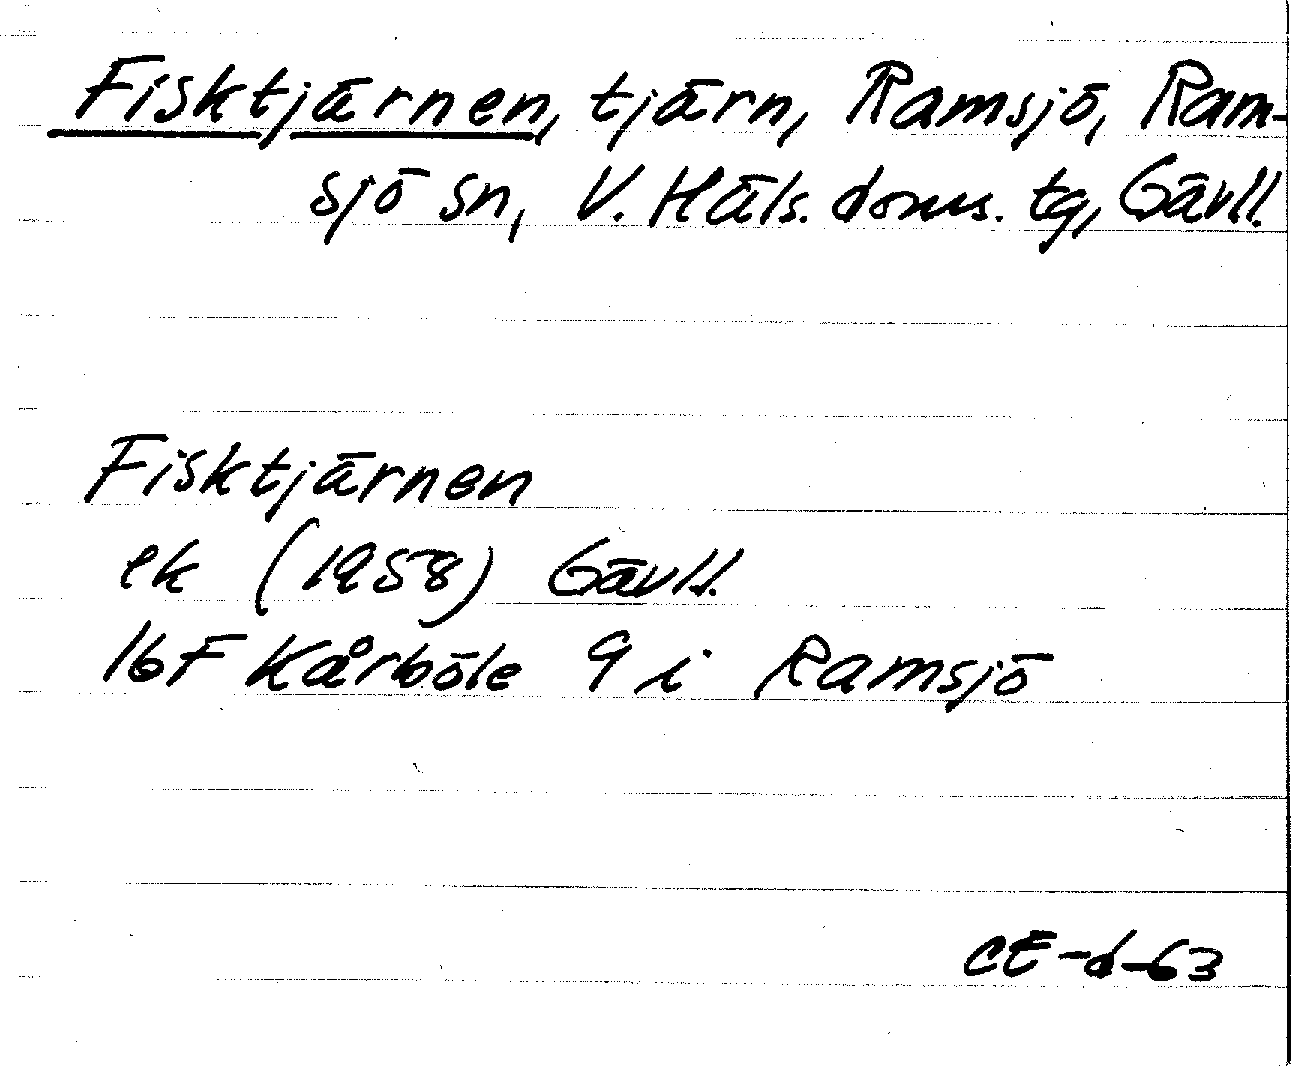 Fisktjärnen, tjärn, Ramsjö, Ram-
sjö sn, V. Häls. doms. tg, Gävll.
Fisktjärnen
ek (1958) Gävll.
16F Kårböle 9 i Ramsjö
CE-d-63